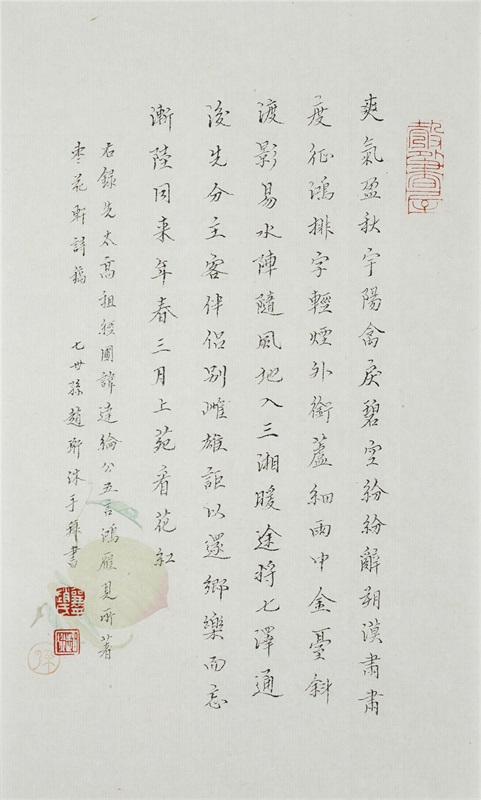 爽氣盈秋宇陽禽戾碧空紛紛辭朔漠肅肅
度征鴻排字輕煙外銜蘆細雨中金臺斜
渡影易水陣隨風地入三湘暖途將七澤通
後先分主客伴侶別雌雄詎以還鄉樂而忘
漸陸同来年春三月上苑看花紅
右錄先太高祖經圃諱達綸公五言鴻雁見所著
枣花軒詩稿 七世孫趙珩沐手恭書